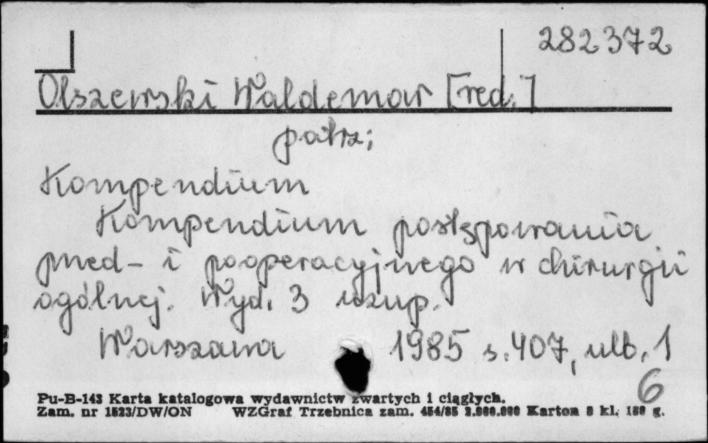 282372
Olszewski Waldemar [red.]
patrz;
Kompendium
Kompendium postępowania
przed- i pooperacyjnego w chirurgii
ogólnej. Wyd. 3 uzup.
Warszawa 1985 s. 407, nlb. 1
6
Pu-B-143 Karta katalogowa wydawnictw zwartych i ciągłych.
Zam. nr 1523/DW/ON WZGraf Trzebnica zam. 454/85 2.000.000 Karton 8 kl. 180 g.